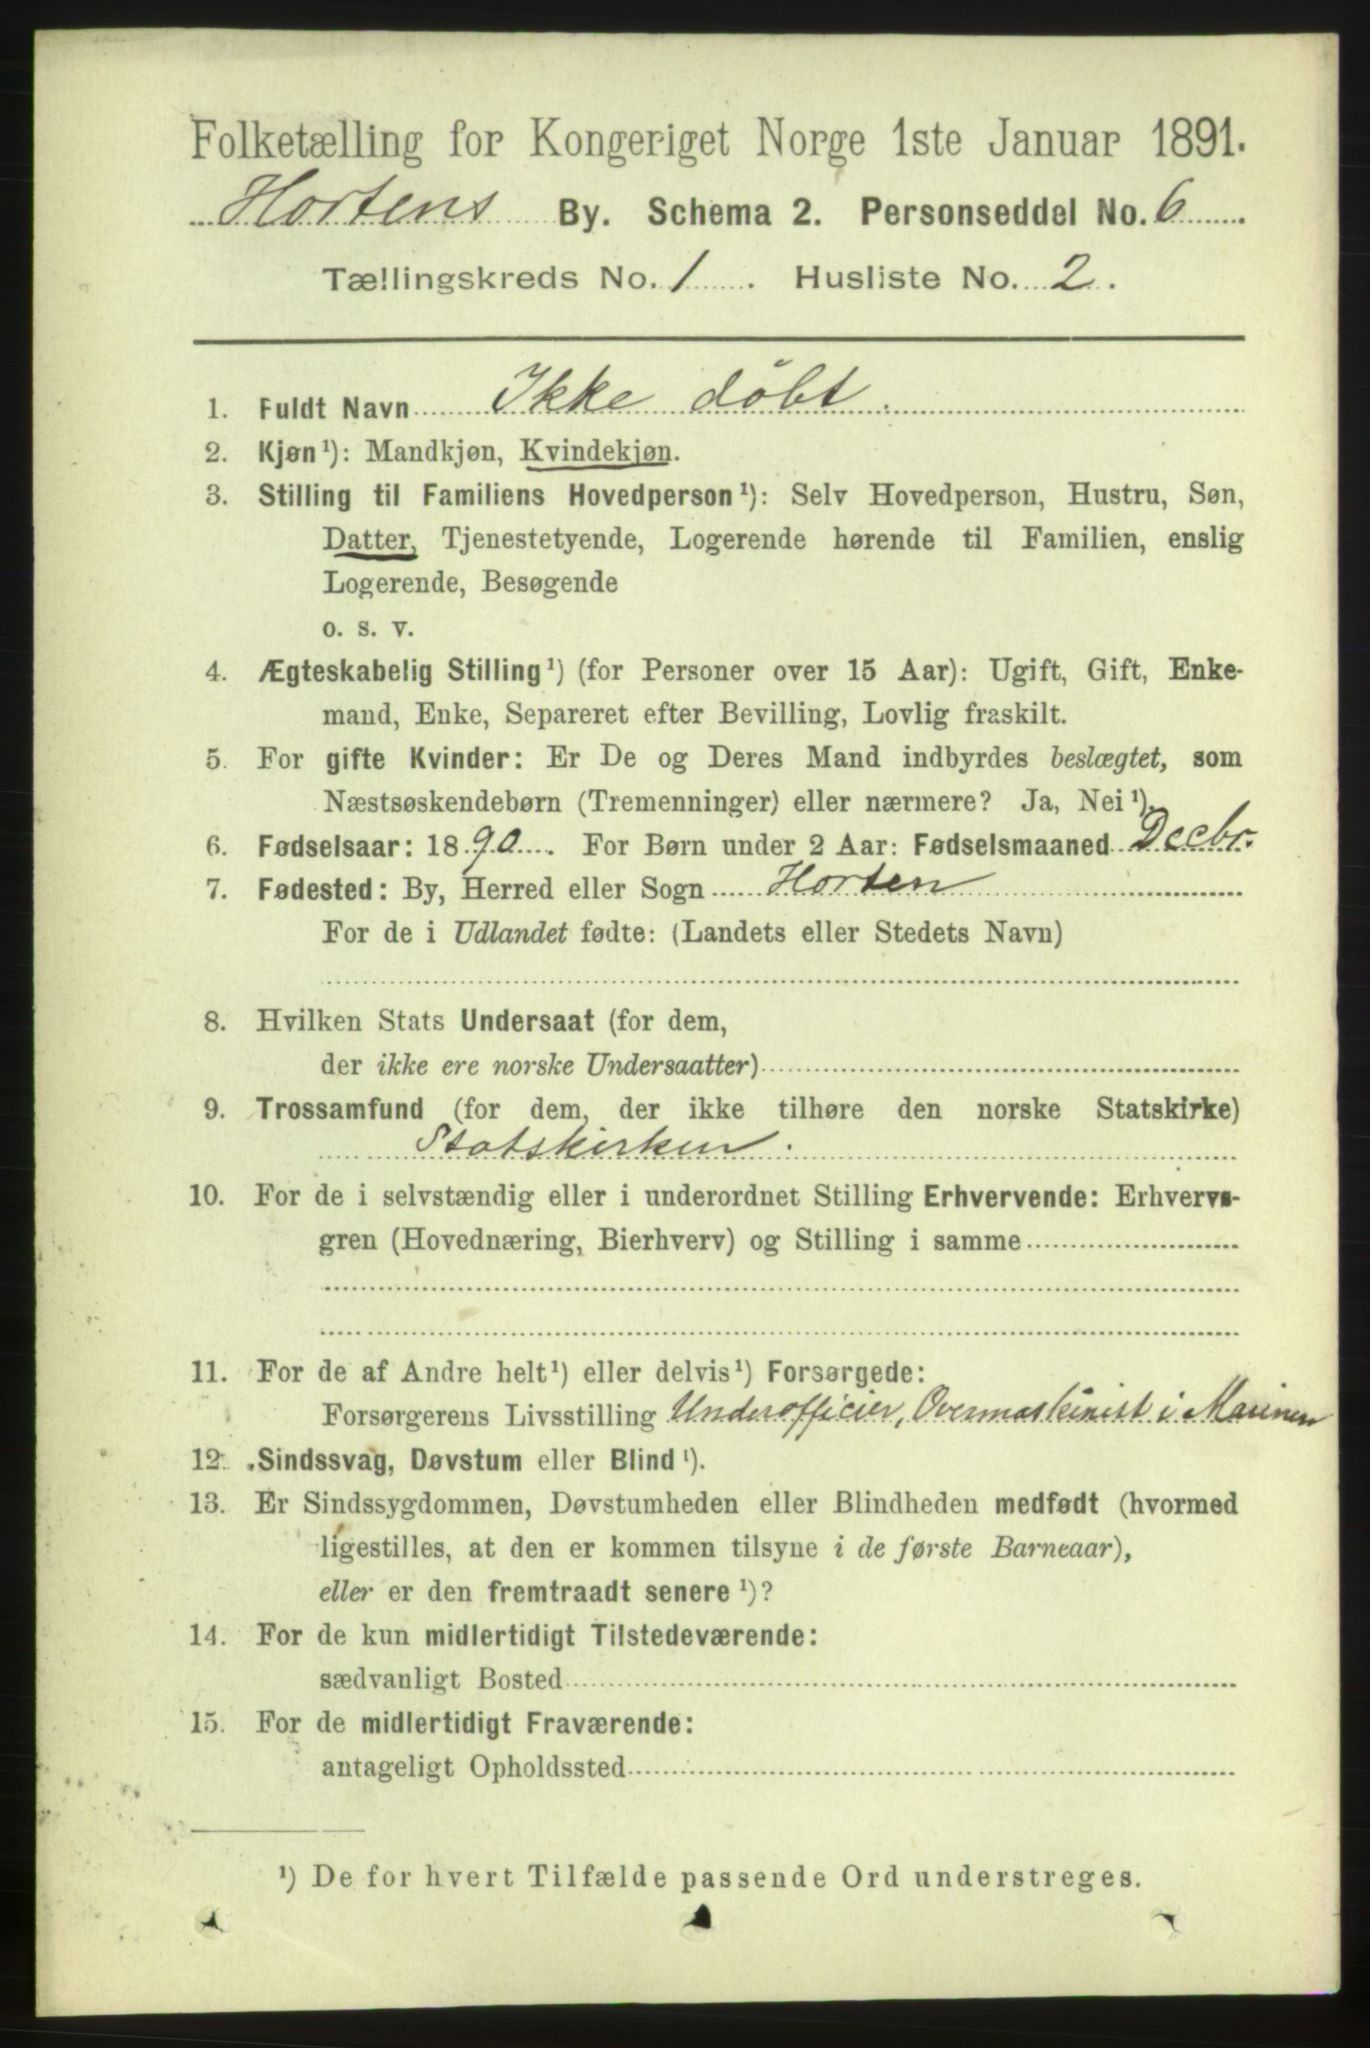 Folketælling for Kongeriget Norge 1ste Januar 1891.
Hortens By. Schema 2. Personseddel No. 6
Tællingskreds No. 1. Husliste No. 2.
1. Fuldt Navn Ikke döbt.
2. Kjøn¹): Mandkjøn, Kvindekjøn.
3. Stilling til Familiens Hovedperson¹): Selv Hovedperson, Hustru, Søn,
Datter, Tjenestetyende, Logerende hørende til Familien, enslig
Logerende, Besøgende
o. s. v.
4. Ægteskabelig Stilling¹) (for Personer over 15 Aar): Ugift, Gift, Enke-
mand, Enke, Separeret efter Bevilling, Lovlig fraskilt.
5. For gifte Kvinder: Er De og Deres Mand indbyrdes beslægtet, som
Næstsøskendebørn (Tremenninger) eller nærmere? Ja, Nei¹).
6. Fødselsaar: 1890. For Børn under 2 Aar: Fødselsmaaned Decbr.
7. Fødested: By, Herred eller Sogn Horten
For de i Udlandet fødte: (Landets eller Stedets Navn)
8. Hvilken Stats Undersaat (for dem,
der ikke ere norske Undersaatter)
9. Trossamfund (for dem, der ikke tilhøre den norske Statskirke)
Statskirken.
10. For de i selvstændig eller i underordnet Stilling Erhvervende: Erhvervs-
gren (Hovednæring, Bierhverv) og Stilling i samme
11. For de af Andre helt¹) eller delvis¹) Forsørgede:
Forsørgerens Livsstilling Underofficier, Overmaskinist i Marinen
12. Sindssvag, Døvstum eller Blind¹).
13. Er Sindssygdommen, Døvstumheden eller Blindheden medfødt (hvormed
ligestilles, at den er kommen tilsyne i de første Barneaar),
eller er den fremtraadt senere¹)?
14. For de kun midlertidigt Tilstedeværende:
sædvanligt Bosted
15. For de midlertidigt Fraværende:
antageligt Opholdssted
¹) De for hvert Tilfælde passende Ord understreges.